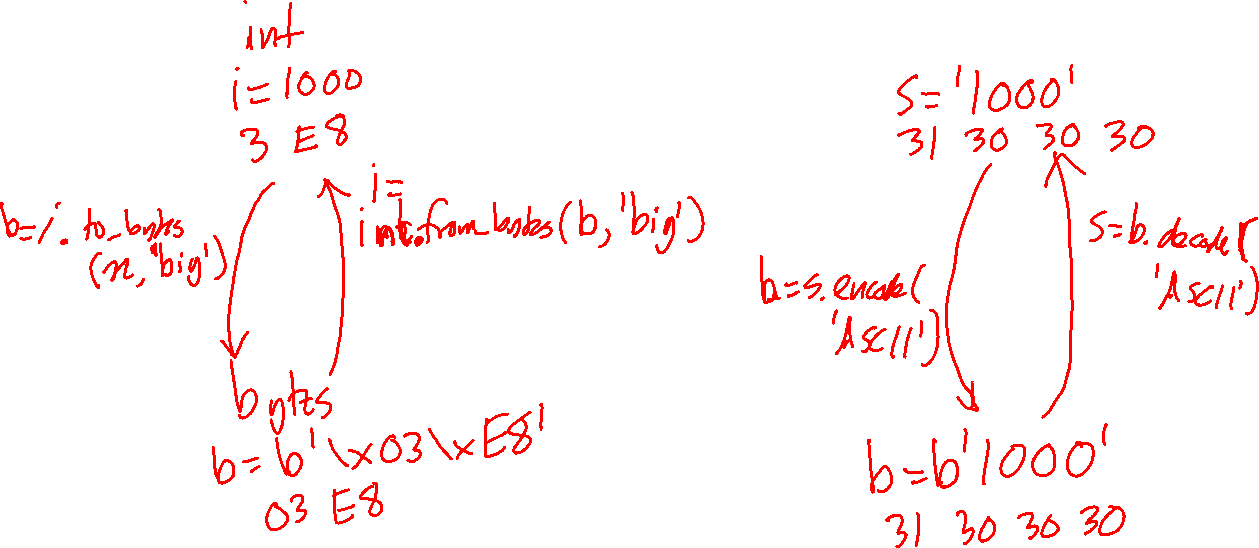 int
i=1000
3 E8
b=i.to_bytes
(n,'big')
i=
int.from_bytes(b,'big')
bytes
b=b'\x03\xE8'
03 E8
s='1000'
31 30 30 30
b=s.encode(
'ASCII')
s=b.decode(
'ASCII')
b=b'1000'
31 30 30 30